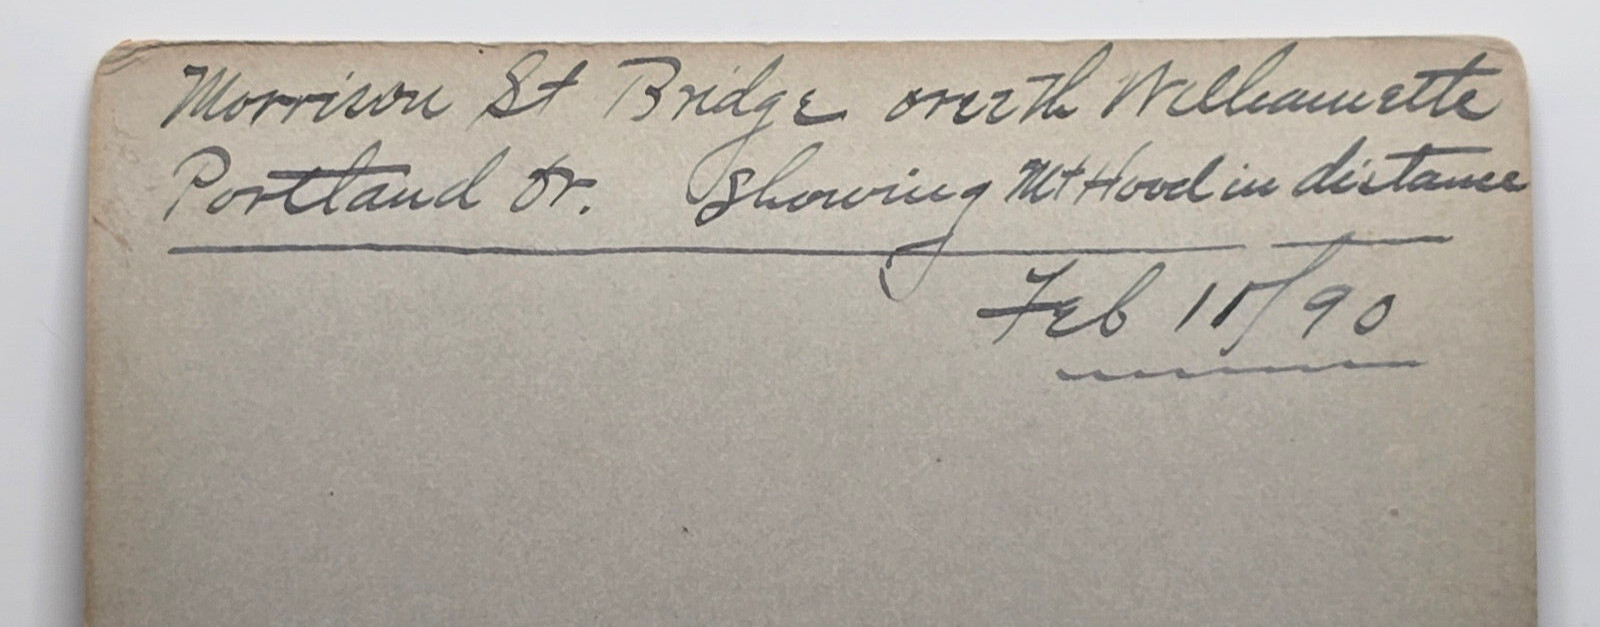 Morrison St Bridge over th Willamette
Portland Or. Showing Mt Hood in distance
Feb /90